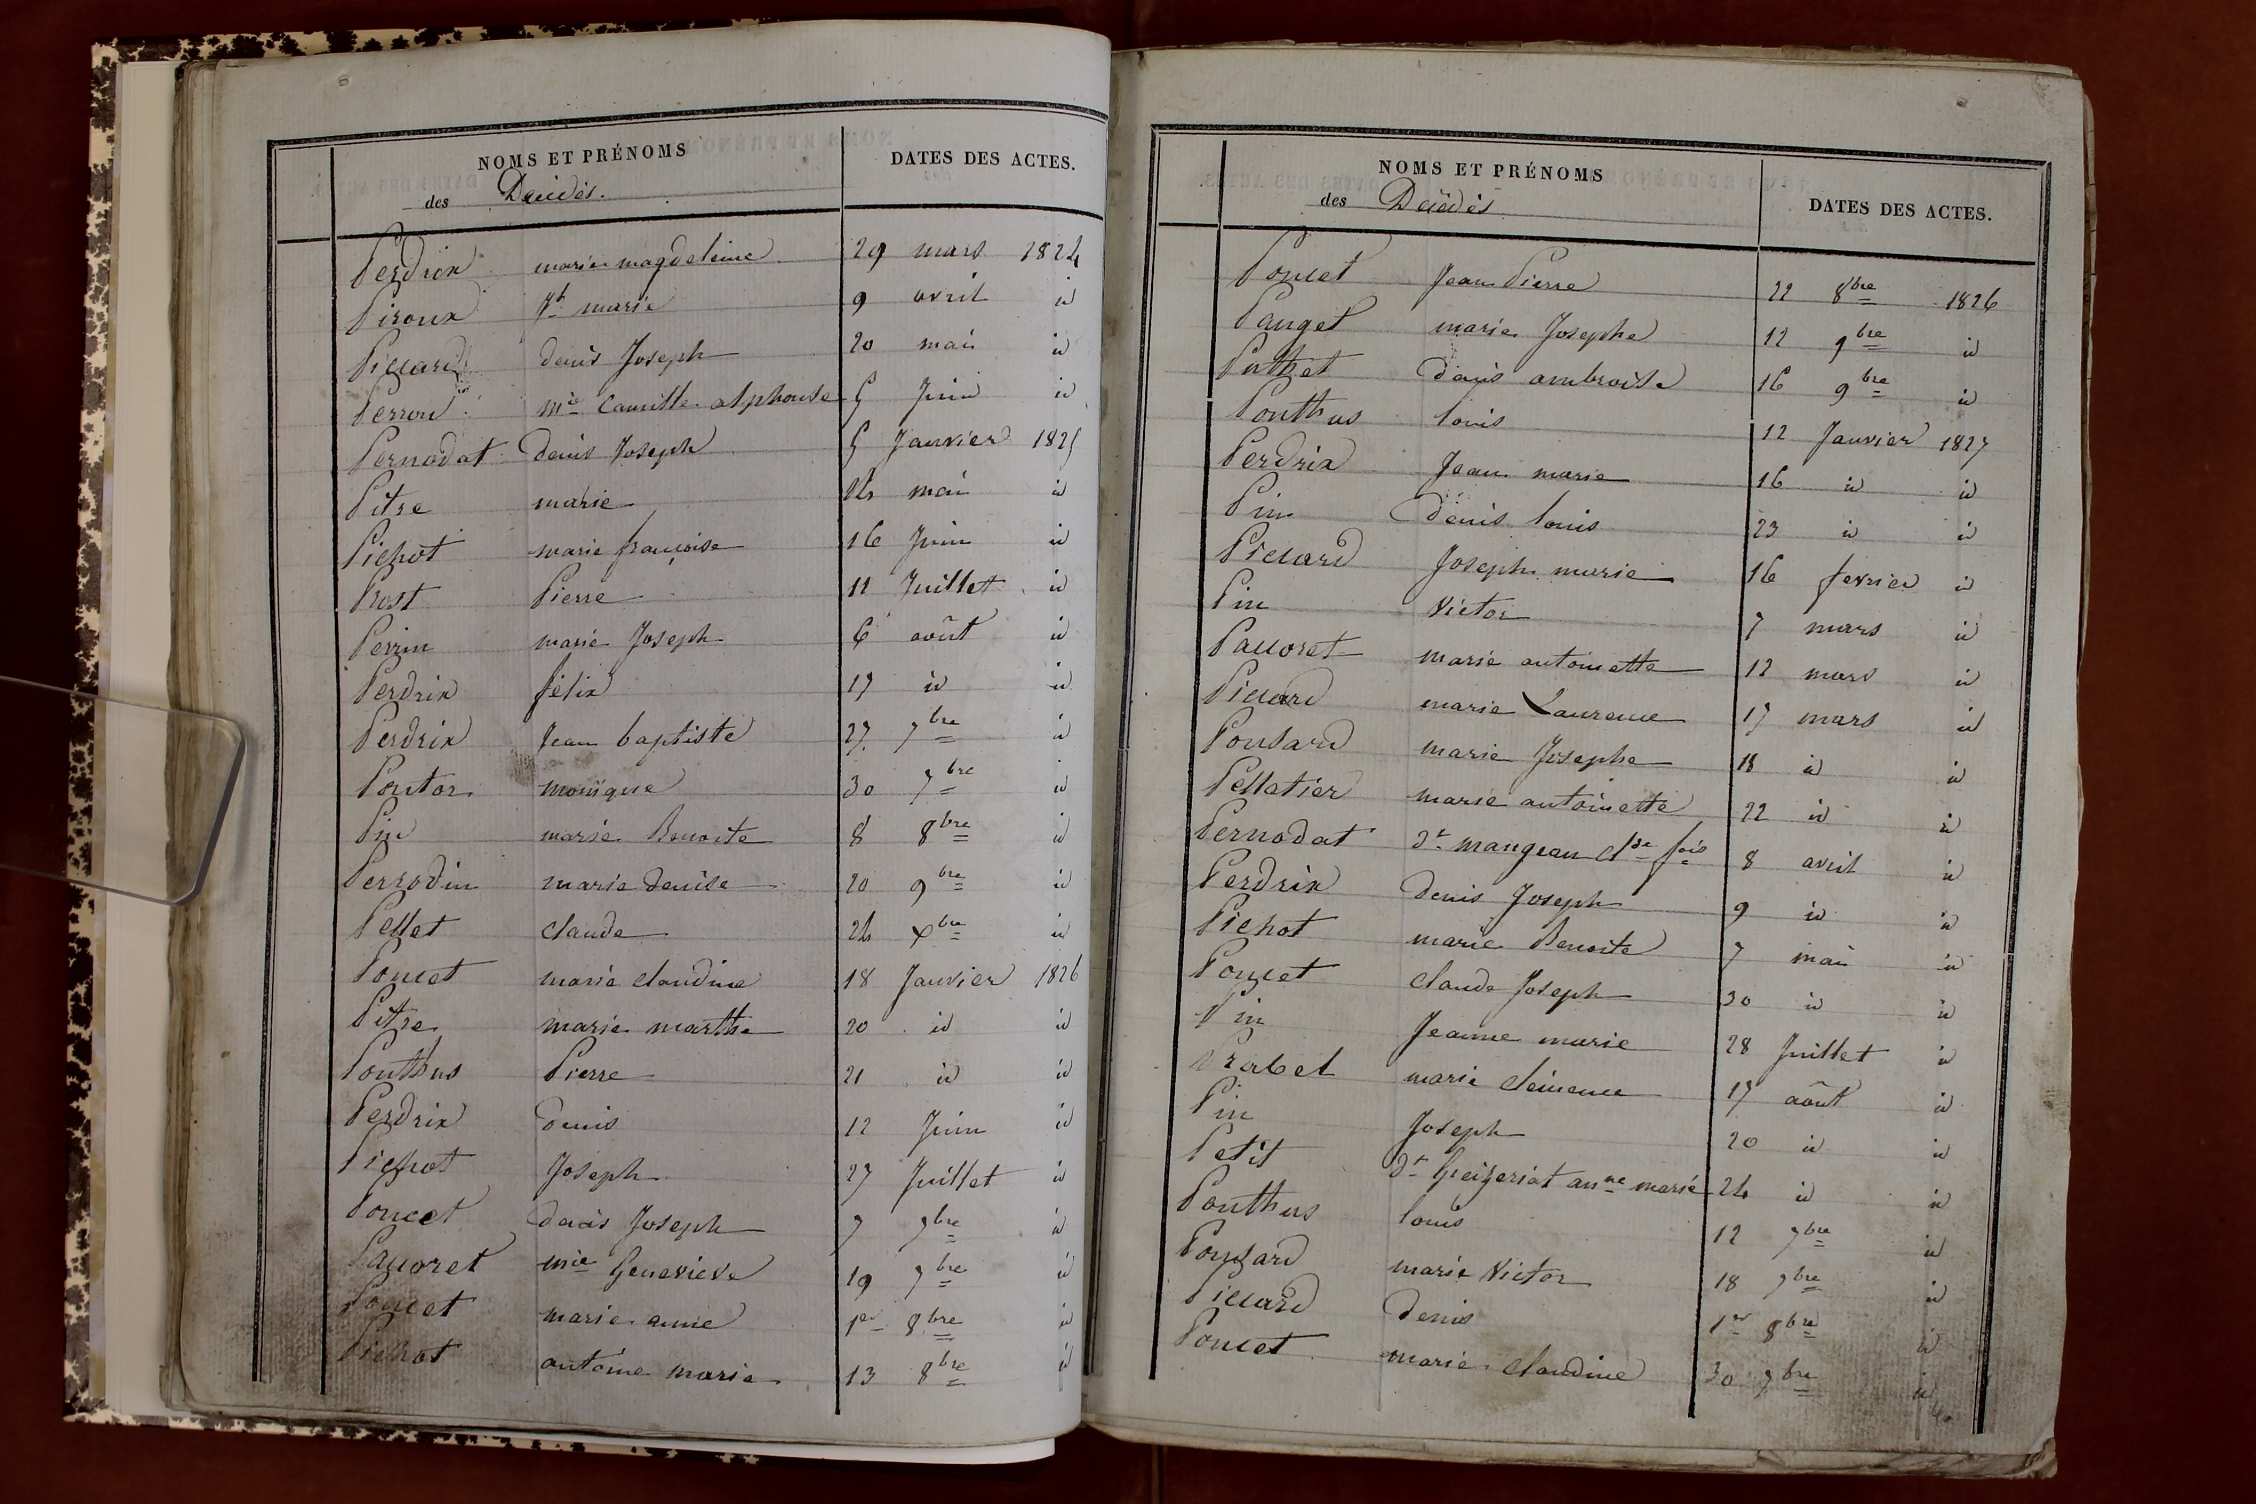 NOMS ET PRÉNOMS
des Décédés.
DATES DES ACTES.
Perdrix marie magdeleine 29 mars 1824
Piroux Jh marie 9 avril id
Piccard denis Joseph 20 mai id
Perron mie Camille alphonse 5 Juin id
Pernodat Denis Joseph 5 Janvier 1825
Pitre marie 24 mai id
Pichot marie françoise 16 Juin id
Prost Pierre 11 Juillet id
Perrin marie Joseph 6 août id
Perdrix félix 17 id id
Perdrix Jean baptiste 27 7bre id
Ponton monique 30 7bre id
Pin marie Benoite 8 8bre id
Perrodin marie denise 20 9bre id
Pellet claude 24 Xbre id
Poncet marie claudine 18 Janvier 1826
Pitre marie marthe 20 id id
Ponthus Pierre 21 id id
Perdrix Denis 12 Juin id
Pichot Joseph 27 Juillet id
Poncet denis Joseph 7 7bre id
Paccoret mie Genevieve 19 7bre id
Poncet marie anne 1er 8bre id
Pichot antoine marie 13 8bre id
NOMS ET PRÉNOMS
des Décédés
DATES DES ACTES.
Poncet Jean Pierre 22 8bre 1826
Pauget marie Josephe 12 9bre id
Puthet denis ambroise 16 9bre id
Ponthus louis 12 Janvier 1827
Perdrix Jean marie 16 id id
Pin denis louis 23 id id
Piccard Joseph marie 16 fevrier id
Pin Victor 7 mars id
Paccoret marie antoinette 12 mars id
Piccard marie Laurence 17 mars id
Ponsard marie Josephe 18 id id
Pelletier marie antoinette 22 id id
Pernodat dt mangean Cl de fois 8 avril id
Perdrix denis Joseph 9 id id
Pichot marie Benoite 7 mai id
Poncet claude Joseph 30 id id
Pin Jeanne marie 28 Juillet id
Prabel marie clémence 17 août id
Pin Joseph 20 id id
Petit dt anne marie 24 id id
Ponthus louis 12 7bre id
Ponsard marie Victor 18 7bre id
Piccard denis 1er 8bre id
Poncet marie claudine 30 9bre id